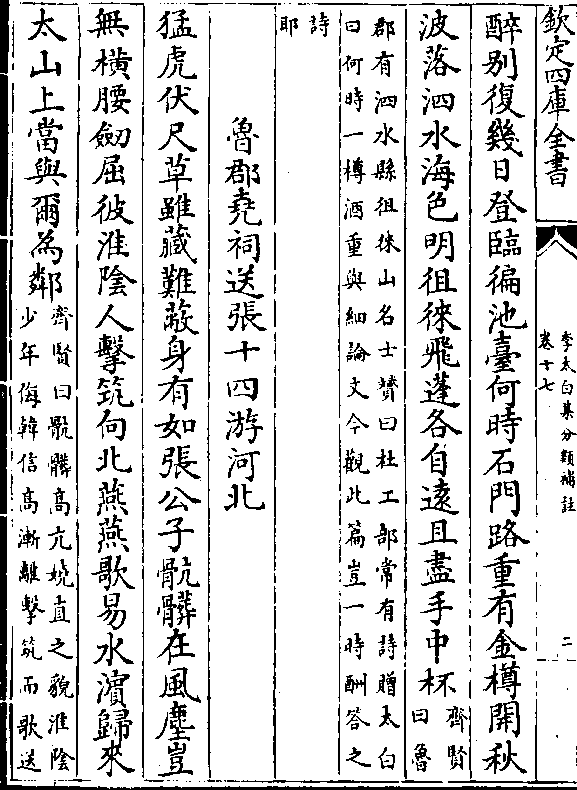 欽定四庫全書
李太白集分類補註
卷十七
二
醉别復幾日登臨徧池臺何時石門路重有金樽開秋
波落泗水海色明徂徠飛蓬各自逺且盡手中杯
齊賢
曰魯
郡有泗水縣徂徠山名士贇曰杜工部常有詩贈太白
曰何時一樽酒重與細論文今觀此篇豈一時酬答之
詩
耶
魯郡堯祠送張十四游河北
猛虎伏尺草雖藏難蔽身有如張公子骯髒在風塵豈
無橫腰劒屈彼淮陰人擊筑向北燕燕歌易水濱歸來
太山上當與爾為鄰
齊賢曰骯髒高亢婞直之貌淮陰
少年侮韓信髙漸離擊筑而歌送